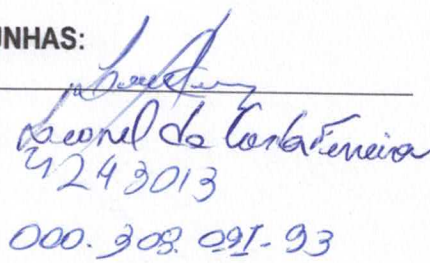 UNHAS:
Leonel da Costa Ferreira
4243013
000.308.091-93